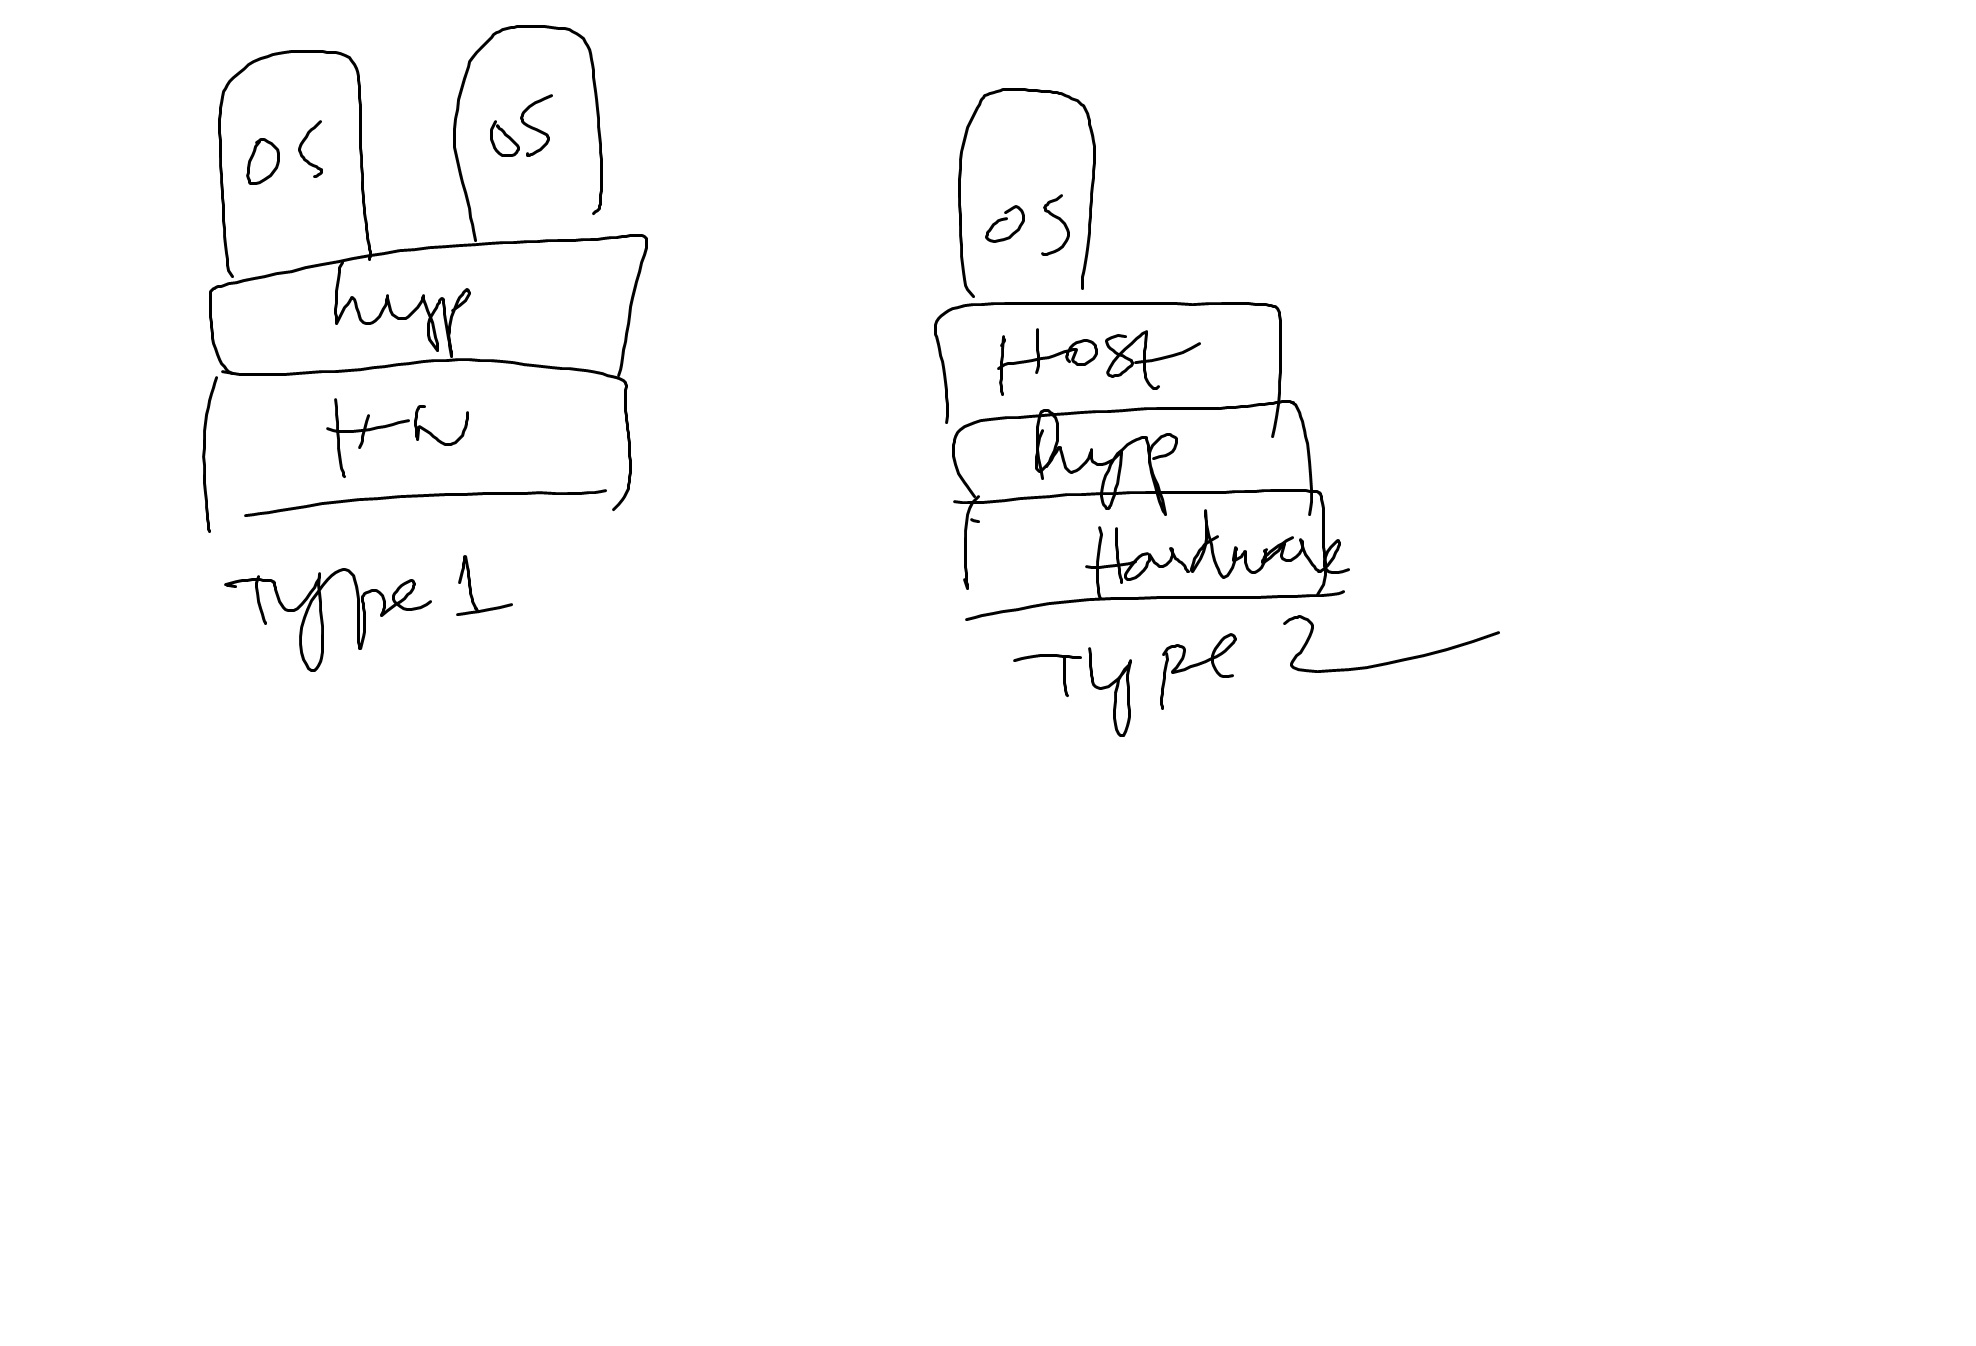 OS
OS
hyp
HW
Type 1
OS
Host
hyp
Hardware
Type 2